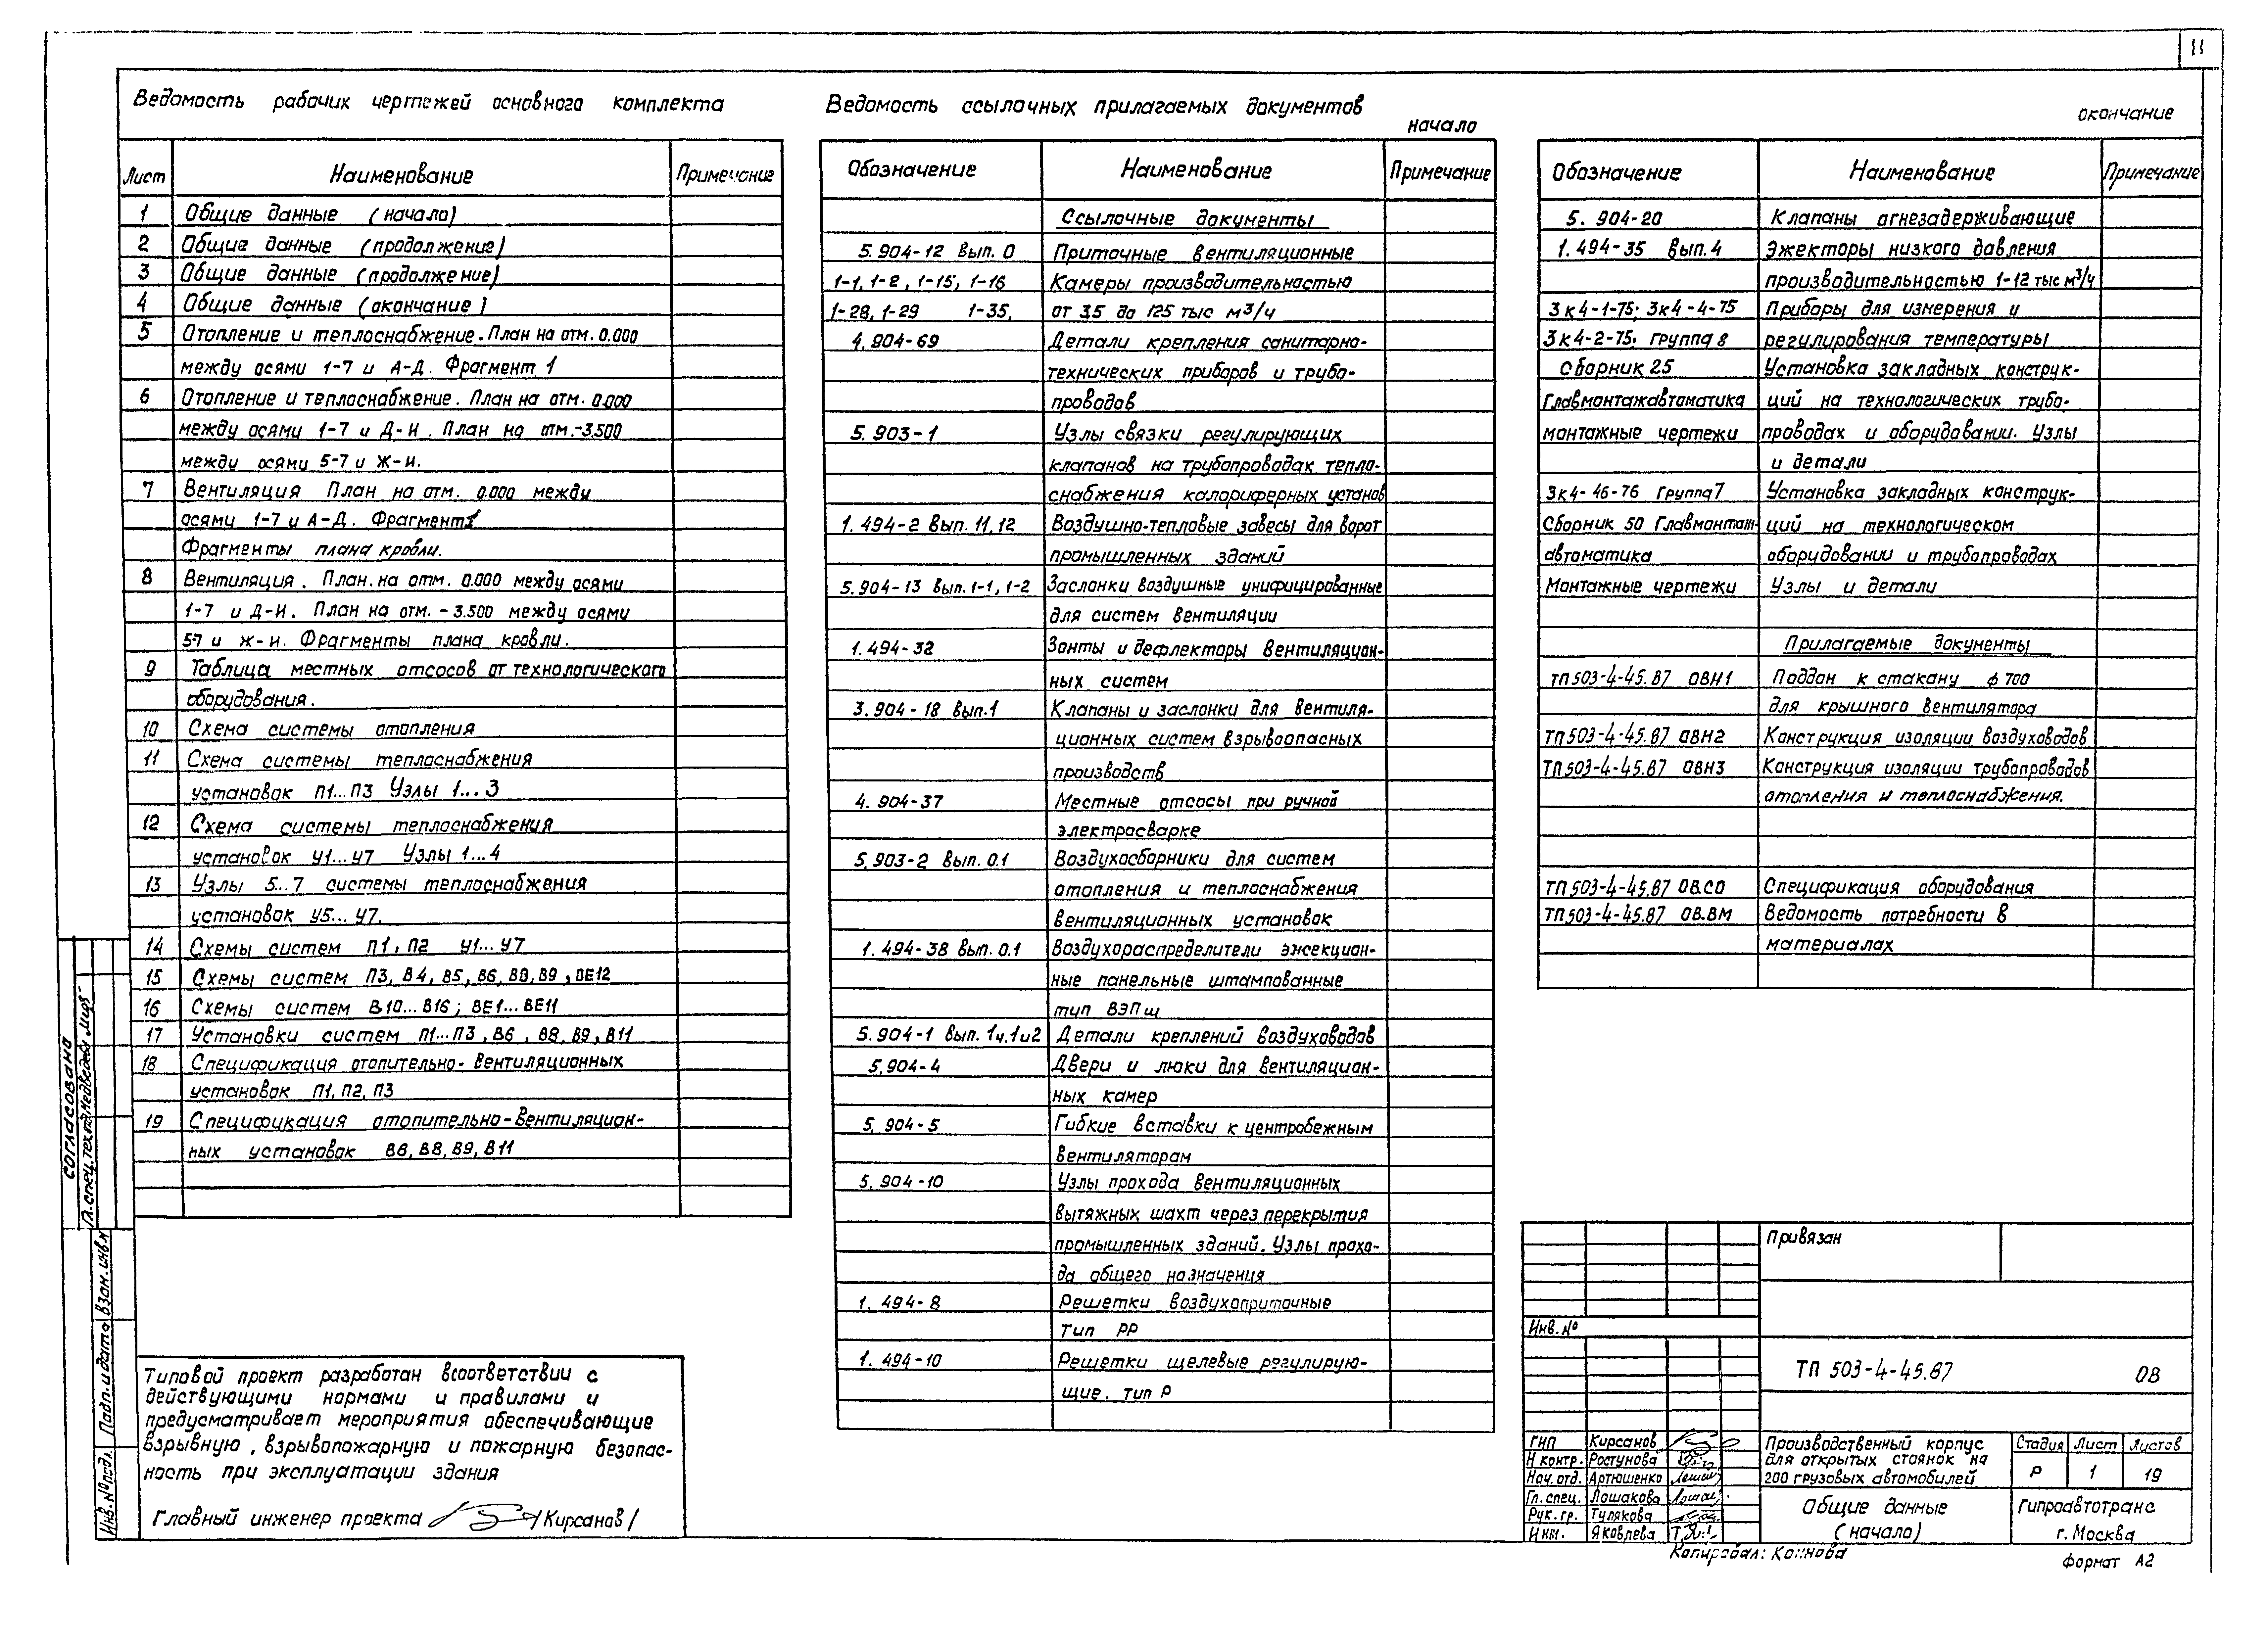 11
Ведомость рабочих чертежей основного комплекта
Лист Наименование Примечание
1 Общие данные (начало)
2 Общие данные (продолжение)
3 Общие данные (продолжение)
4 Общие данные (окончание)
5 Отопление и теплоснабжение. План на отм. 0.000
между осями 1-7 и А-Д. Фрагмент 1
6 Отопление и теплоснабжение. План на отм. 0.000
между осями 1-7 и Д-И. План на отм.-3.500
между осями 5-7 и Ж-И.
7 Вентиляция План на отм. 0.000 между
осями 1-7 и А-Д. Фрагмент 1
Фрагменты плана кровли.
8 Вентиляция. План. на отм. 0.000 между осями
1-7 и Д-И. План на отм. -3.500 между осями
57 и Ж-И. Фрагменты плана кровли.
9 Таблица местных отсосов от технологического
оборудования.
10 Схема системы отопления
11 Схема системы теплоснабжения
установок П1...П3 Узлы 1...3
12 Схема системы теплоснабжения
установок У1...У7 Узлы 1...4
13 Узлы 5...7 системы теплоснабжения
установок У5...У7.
14 Схемы систем П1, П2 У1...У7
15 Схемы систем П3, В4, В5, В6, В8, В9, ВЕ12
16 Схемы систем В10...В16; ВЕ1...ВЕ11
17 Установки систем П1...П3, В6, В8, В9, В11
18 Спецификация отопительно-вентиляционных
установок П1, П2, П3
19 Спецификация отопительно-вентиляцион-
ных установок В6, В8, В9, В11
Типовой проект разработан всоответствии с
действующими нормами и правилами и
предусматривает мероприятия обеспечивающие
взрывную, взрывопожарную и пожарную безопас-
ность при эксплуатации здания
Главный инженер проекта /Кирсанов/
Ведомость ссылочных прилагаемых документов
начало
Обозначение Наименование Примечание
Ссылочные документы
5.904-12 вып. 0 Приточные вентиляционные
1-1, 1-2, 1-15, 1-16 Камеры производительностью
1-28, 1-29 1-35. от 3.5 до 125 тыс м³/ч
4.904-69 Детали крепления санитарно-
технических приборов и трубо-
проводов
5.903-1 Узлы связки регулирующих
клапанов на трубопроводах тепло-
снабжения калориферных установ
1.494-2 вып. 11, 12 Воздушно-тепловые завесы для ворот
промышленных зданий
5.904-13 вып. 1-1, 1-2 Заслонки воздушные унифицированные
для систем вентиляции
1.494-32 Зонты и дефлекторы вентиляцион-
ных систем
3.904-18 вып.1 Клапаны и заслонки для вентиля-
ционных систем взрывоопасных
производств
4.904-37 Местные отсосы при ручной
электросварке
5.903-2 вып. 0.1 Воздухосборники для систем
отопления и теплоснабжения
вентиляционных установок
1.494-38 вып. 0.1 Воздухораспределители эжекцион-
ные панельные штампованные
тип ВЭПш
5.904-1 вып. 1ч.1и2 Детали креплений воздуховодов
5.904-4 Двери и люки для вентиляцион-
ных камер
5.904-5 Гибкие вставки к центробежным
вентиляторам
5.904-10 Узлы прохода вентиляционных
вытяжных шахт через перекрытия
промышленных зданий. Узлы прохо-
да общего назначения
1.494-8 Решетки воздухоприточные
Тип РР
1.494-10 Решетки щелевые регулирую-
щие. тип Р
окончание
Обозначение Наименование Примечание
5.904-20 Клапаны огнезадерживающие
1.494-35 вып.4 Эжекторы низкого давления
производительностью 1-12 тыс м³/ч
3к4-1-75; 3к4-4-75 Приборы для измерения и
3к4-2-75. группа 8 регулирования температуры
Сборник 25 Установка закладных конструк-
Главмонтажавтоматика ций на технологических трубо-
монтажные чертежи проводах и оборудовании. Узлы
и детали
3к4-46-76 Группа 7 Установка закладных конструк-
Сборник 50 Главмонтаж- ций на технологическом
автоматика оборудовании и трубопроводах
Монтажные чертежи Узлы и детали
Прилагаемые документы
ТП503-4-45.87 ОВН1 Поддон к стакану ϕ 700
для крышного вентилятора
ТП503-4-45.87 ОВН2 Конструкция изоляции воздуховодов
ТП503-4-45.87 ОВН3 Конструкция изоляции трубопроводов
отопления и теплоснабжения.
ТП503-4-45.87 ОВ.СО Спецификация оборудования
ТП503-4-45.87 ОВ.ВМ Ведомость потребности в
материалах
Привязан
Инв.№
ТП 503-4-45.87 ОВ
ГИП Кирсанов
Н контр. Ростунова
Нач. отд. Артюшенко
Гл. спец. Лошакова
Рук. гр. Тулякова
Инж. Яковлева
Производственный корпус
для открытых стоянок на
200 грузовых автомобилей
Стадия Лист Листов
Р 1 19
Общие данные
(начало)
Гипроавтотранс
г. Москва
Копировал: Коннова
Формат А2
согласовано
Гл. спец. тех. Медведев
Инв.№подл. Подп.и дата Взам.инв.№